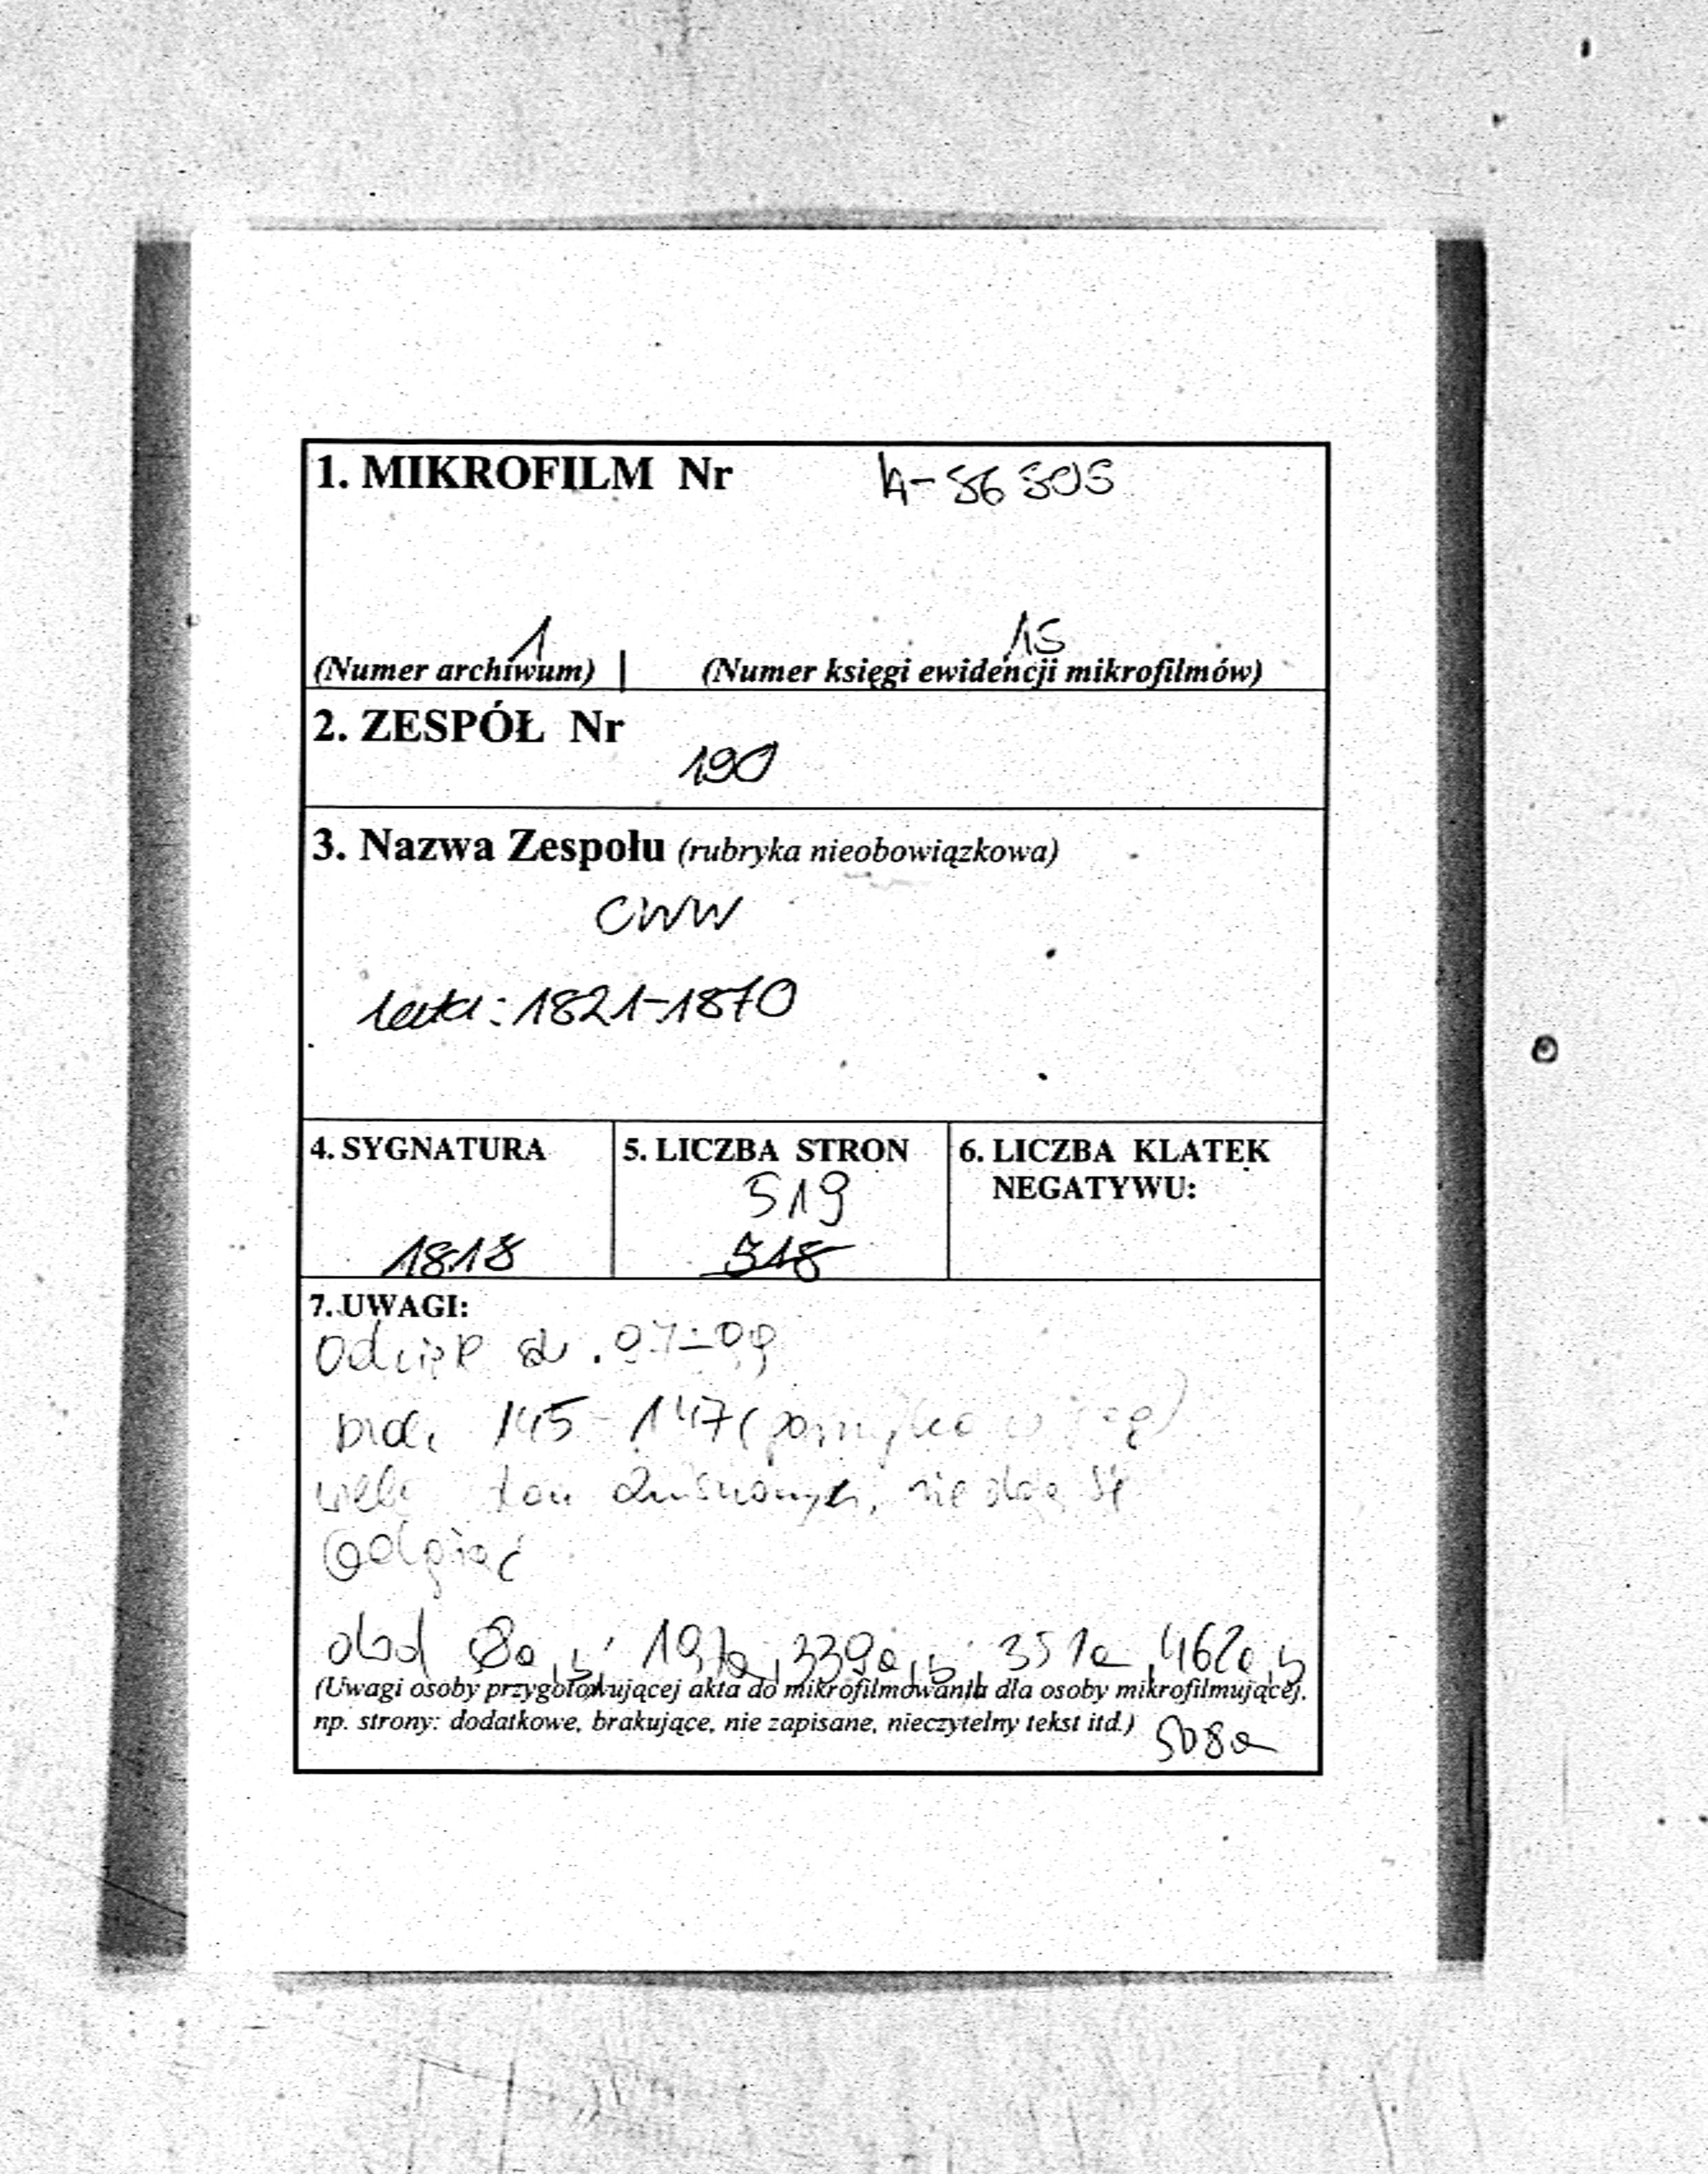 1. MIKROFILM Nr A-56505
1 15
(Numer archiwum) | (Numer księgi ewidencji mikrofilmów)
2. ZESPÓŁ Nr
190
3. Nazwa Zespołu (rubryka nieobowiązkowa)
CWW
lata: 1821-1870
4. SYGNATURA 5. LICZBA STRON 6. LICZBA KLATEK
NEGATYWU:
519
1818 518
7. UWAGI:
Odcisk
brak 145-147 (pomyłka
wiele stron zszytych, nie da się
odgiąć
dod 197a, 339a, b, 351a, 462a, b
(Uwagi osoby przygotowującej akta do mikrofilmowania dla osoby mikrofilmującej,
np. strony: dodatkowe, brakujące, nie zapisane, nieczytelny tekst itd.) 508a